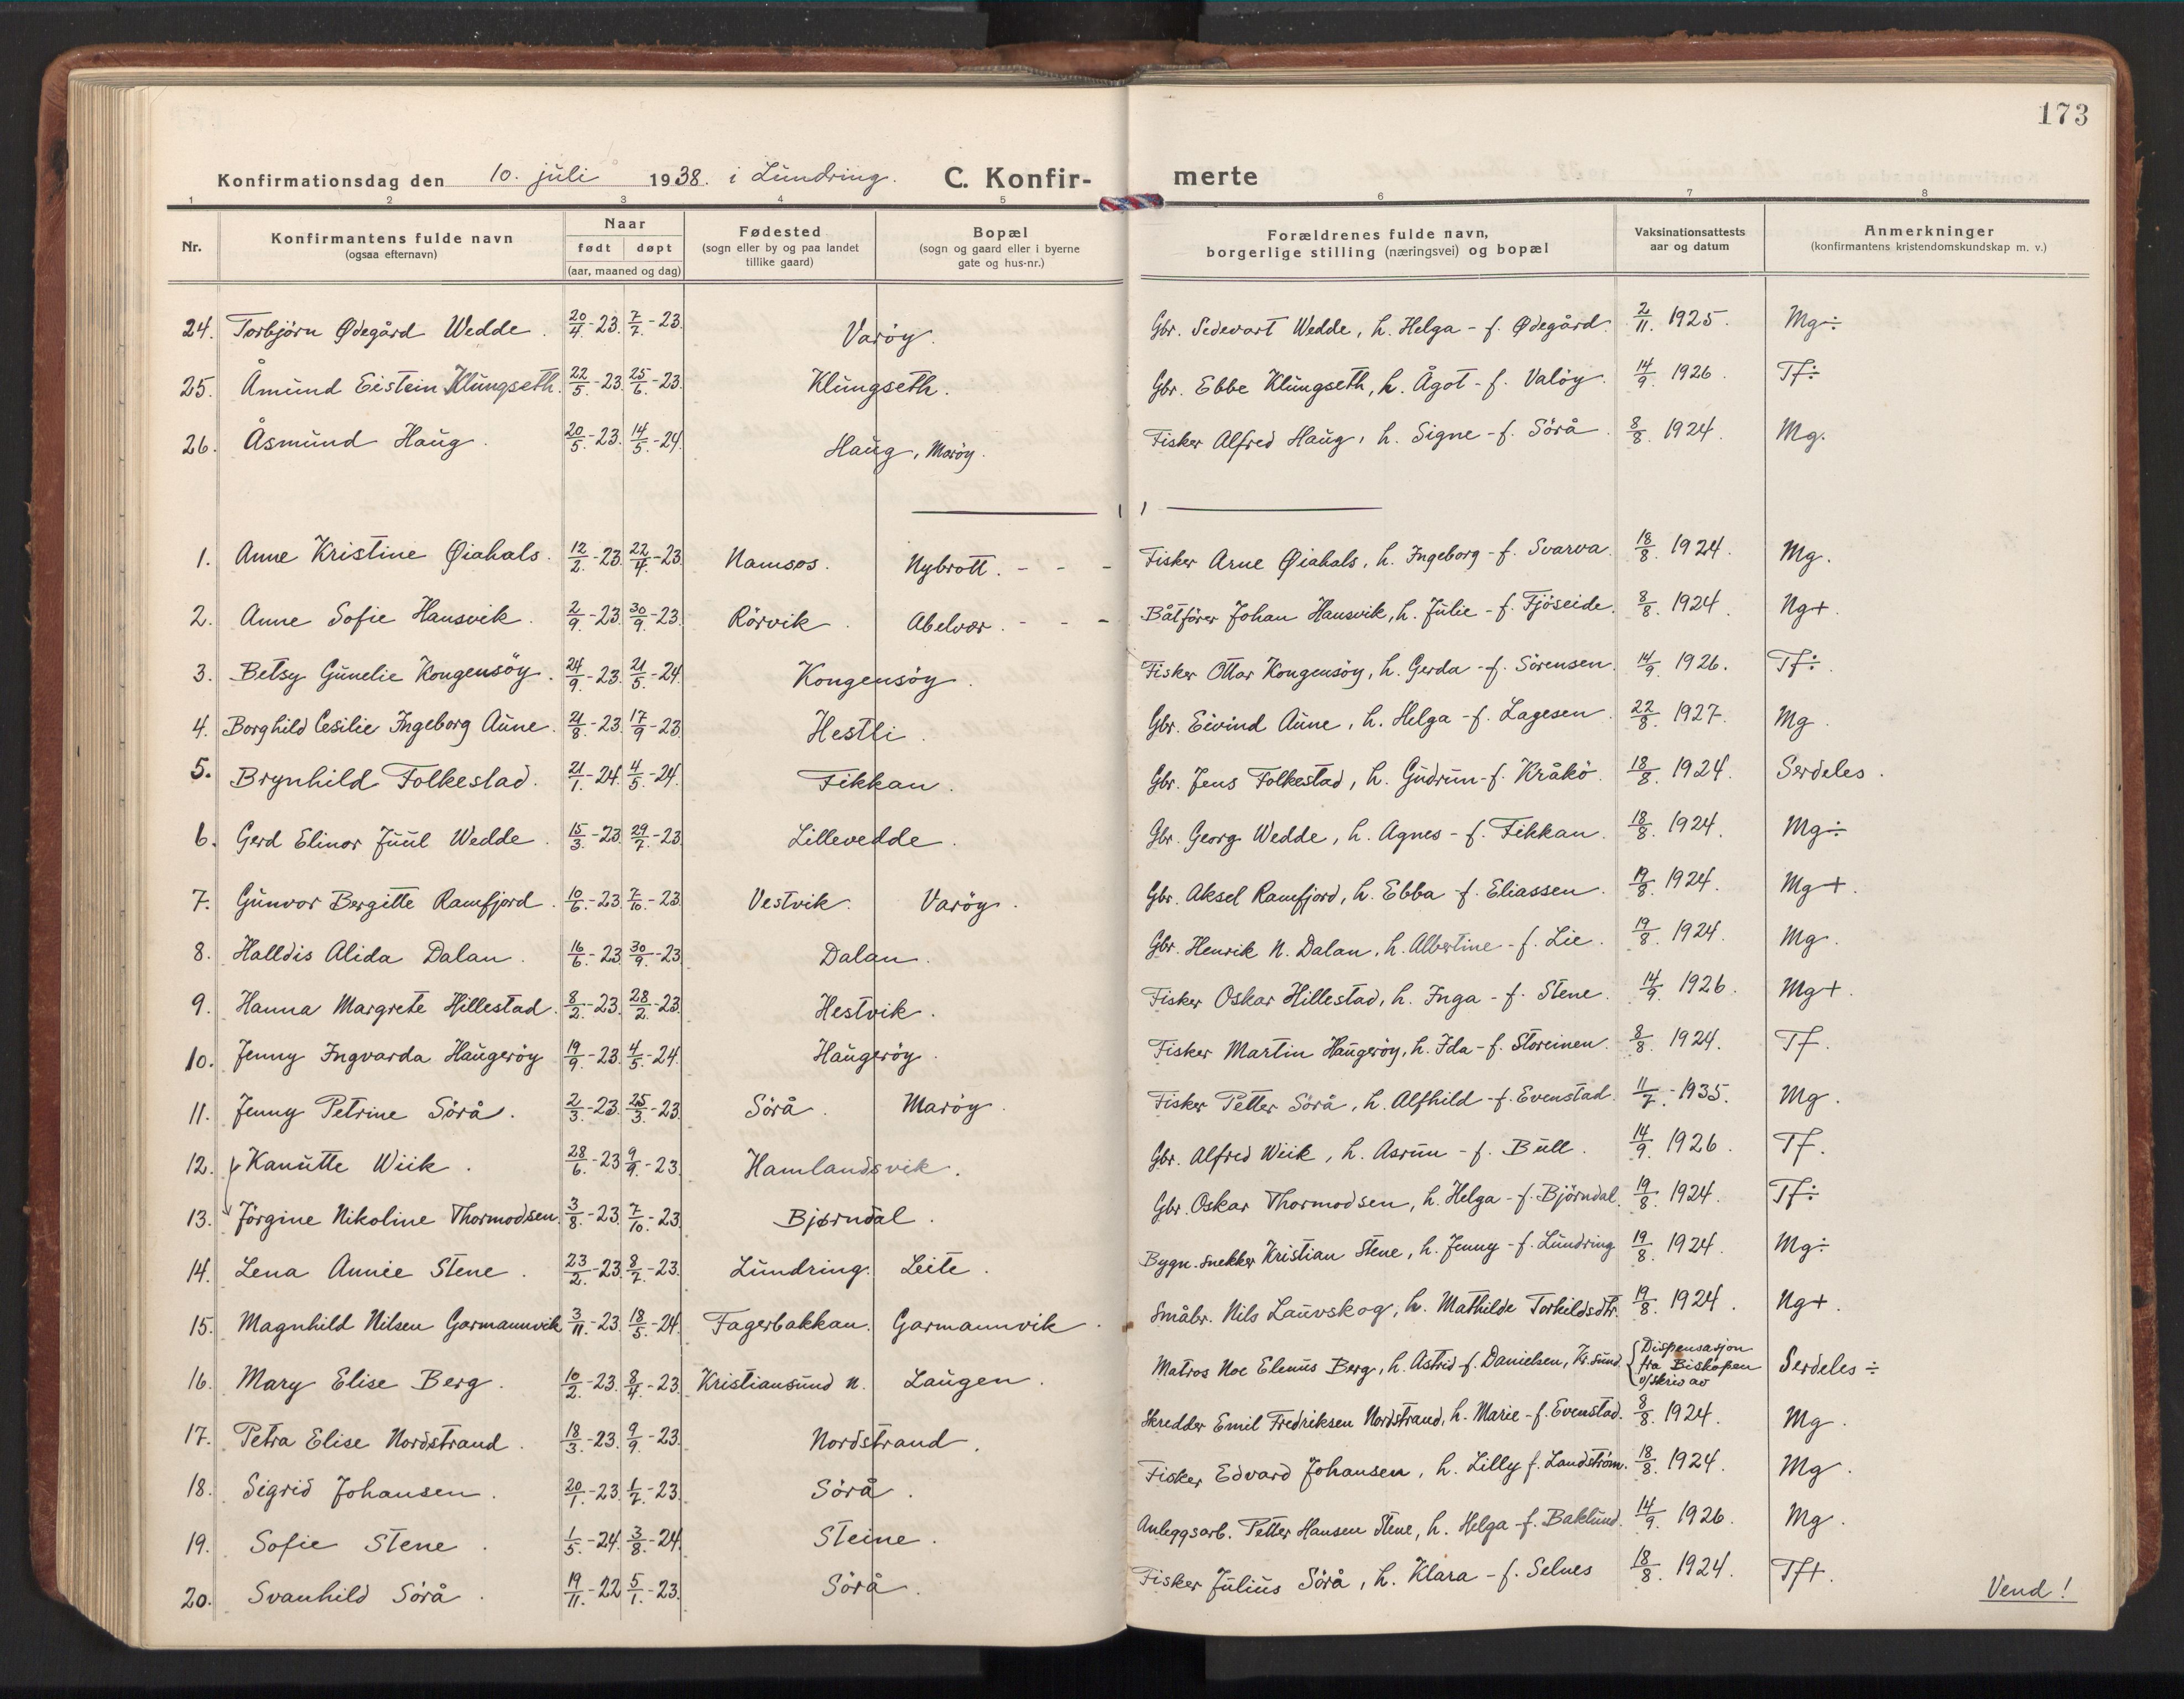 173
Konfirmationsdag den 10. juli 1938. i Lundring. C. Konfir- merte
1 2 3 4 5 6 7 8
Nr. Konfirmantens fulde navn (ogsaa efternavn) Naar født døpt (aar, maaned og dag) Fødested (sogn eller by og paa landet tillike gaard) Bopæl (sogn og gaard eller i byerne gate og hus-nr.) Forældrenes fulde navn, borgerlige stilling (næringsvei) og bopæl Vaksinationsattests aar og datum Anmerkninger (konfirmantens kristendomskundskap m. v.)
24. Torbjörn Ødegård Wedde. 20/4.-23. 7/7.-23. Varöy. Gbr. Sedevart Wedde, h. Helga - f. Ødegård. 2/11. 1925. Mg÷
25. Åmund Eistein Klungseth. 22/5.-23. 25/6.-23. Klungseth. Gbr. Ebbe Klungseth, h. Ågot - f. Valöy. 14/9. 1926. Tf÷
26. Åsmund Haug. 20/5.-23. 14/5.-24. Haug, Maröy. Fisker Alfred Haug, h. Signe - f. Sörå. 8/8. 1924. Mg.
1. Anne Kristine Øiahals. 12/2.-23. 22/4.-23. Namsos. Nybrott. - - - Fisker Arne Øiahals, h. Ingeborg - f. Svarva. 18/8. 1924. Mg.
2. Anne Sofie Hansvik. 2/9.-23. 30/9.-23. Rörvik. Abelvær. - - - Båtförer Johan Hansvik, h. Julie - f. Fjöseide. 8/8. 1924. Ng+.
3. Betsy Gunelie Kongensöy. 24/9.-23. 21/5.-24. Kongensöy. Fisker Ottar Kongensöy, h. Gerda - f. Sörensen. 14/9. 1926. Tf÷.
4. Borghild Cesilie Ingeborg Aune. 21/8.-23. 17/9.-23. Hestli. Gbr. Eivind Aune, h. Helga - f. Lagesen. 22/8. 1927. Mg.
5. Brynhild Folkestad. 21/1.-24. 4/5.-24. Fikkan. Gbr. Jens Folkestad, h. Gudrun - f. Kråkö. 18/8. 1924. Serdeles.
6. Gerd Elinor Juul Wedde. 15/3.-23. 29/7.-23. Lillevedde. Gbr. Georg Wedde, h. Agnes - f. Fikkan. 18/8. 1924. Mg÷
7. Gunvor Bergitte Ramfjord. 10/6.-23. 7/10.-23. Vestvik. Varöy. Gbr. Aksel Ramfjord, h. Ebba f. Eliassen. 19/8. 1924. Mg+.
8. Halldis Alida Dalan. 16/6.-23. 30/9.-23. Dalan. Gbr. Henrik N. Dalan, h. Albertine - f. Lie. 19/8. 1924. Mg.
9. Hanna Margrete Hillestad. 8/2.-23. 28/2.-23. Hestvik. Fisker Oskar Hillestad, h. Inga - f. Stene. 14/9. 1926. Mg+.
10. Jenny Ingvarda Haugeröy 19/9.-23. 4/5.-24. Haugeröy. Fisker Martin Haugeröy, h. Ida - f. Storeinen. 8/8. 1924. Tf.
11. Jenny Petrine Sörå. 2/3.-23. 25/3.-23. Sörå. Maröy. Fisker Petter Sörå, h. Alfhild - f. Evenstad. 11/7.-1935. Mg.
12. Kanutte Wiik. 28/6.-23. 9/9.-23. Hamlandsvik. Gbr. Alfred Wiik, h. Asrun - f. Bull. 14/9. 1926. Tf.
13. Jörgine Nikoline Thormodsen. 3/8.-23. 7/10.-23. Bjørndal. Gbr. Oskar Thormodsen, h. Helga - f. Björndal. 19/8. 1924. Tf÷
14. Lena Annie Stene. 23/2.-23. 8/7.-23. Lundring. Leite. Bygn. snekker Kristian Stene, h. Jenny - f. Lundring 19/8. 1924. Mg÷
15. Magnhild Nilsen Garmannvik 3/11.-23. 18/5.-24. Fagerbakkan. Garmannvik. Småbr. Nils Lauvskog, h. Mathilde Torkildsdtr. 19/8. 1924. Ng+.
16. Mary Elise Berg. 10/2.-23. 8/4.-23. Kristiansund n. Laugen. Matros Noe Elenus Berg, h. Astrid f. Danielsen, Kr.sund. {Dispensasjon fra Biskopen v/skriv av Serdeles ÷
17. Petra Elise Nordstrand. 18/3.-23. 9/9.-23. Nordstrand. Skredder Emil Fredriksen Nordstrand, h. Marie - f. Evenstad. 8/8. 1924. Mg.
18. Sigrid Johansen. 20/1.-23. 1/7.-23. Sörå. Fisker Edvard Johansen, h. Lilly f. Landström. 18/8. 1924. Mg.
19. Sofie Stene. 1/5.-24. 3/8.-24. Steine. Anleggsarb. Petter Hansen Stene, h. Helga - f. Baklund. 14/9. 1926. Mg.
20. Svanhild Sörå. 19/11.-22 5/1.-23. Sörå. Fisker Julius Sörå, h. Klara - f. Selnes 18/8. 1924. Tf+.
Vend!